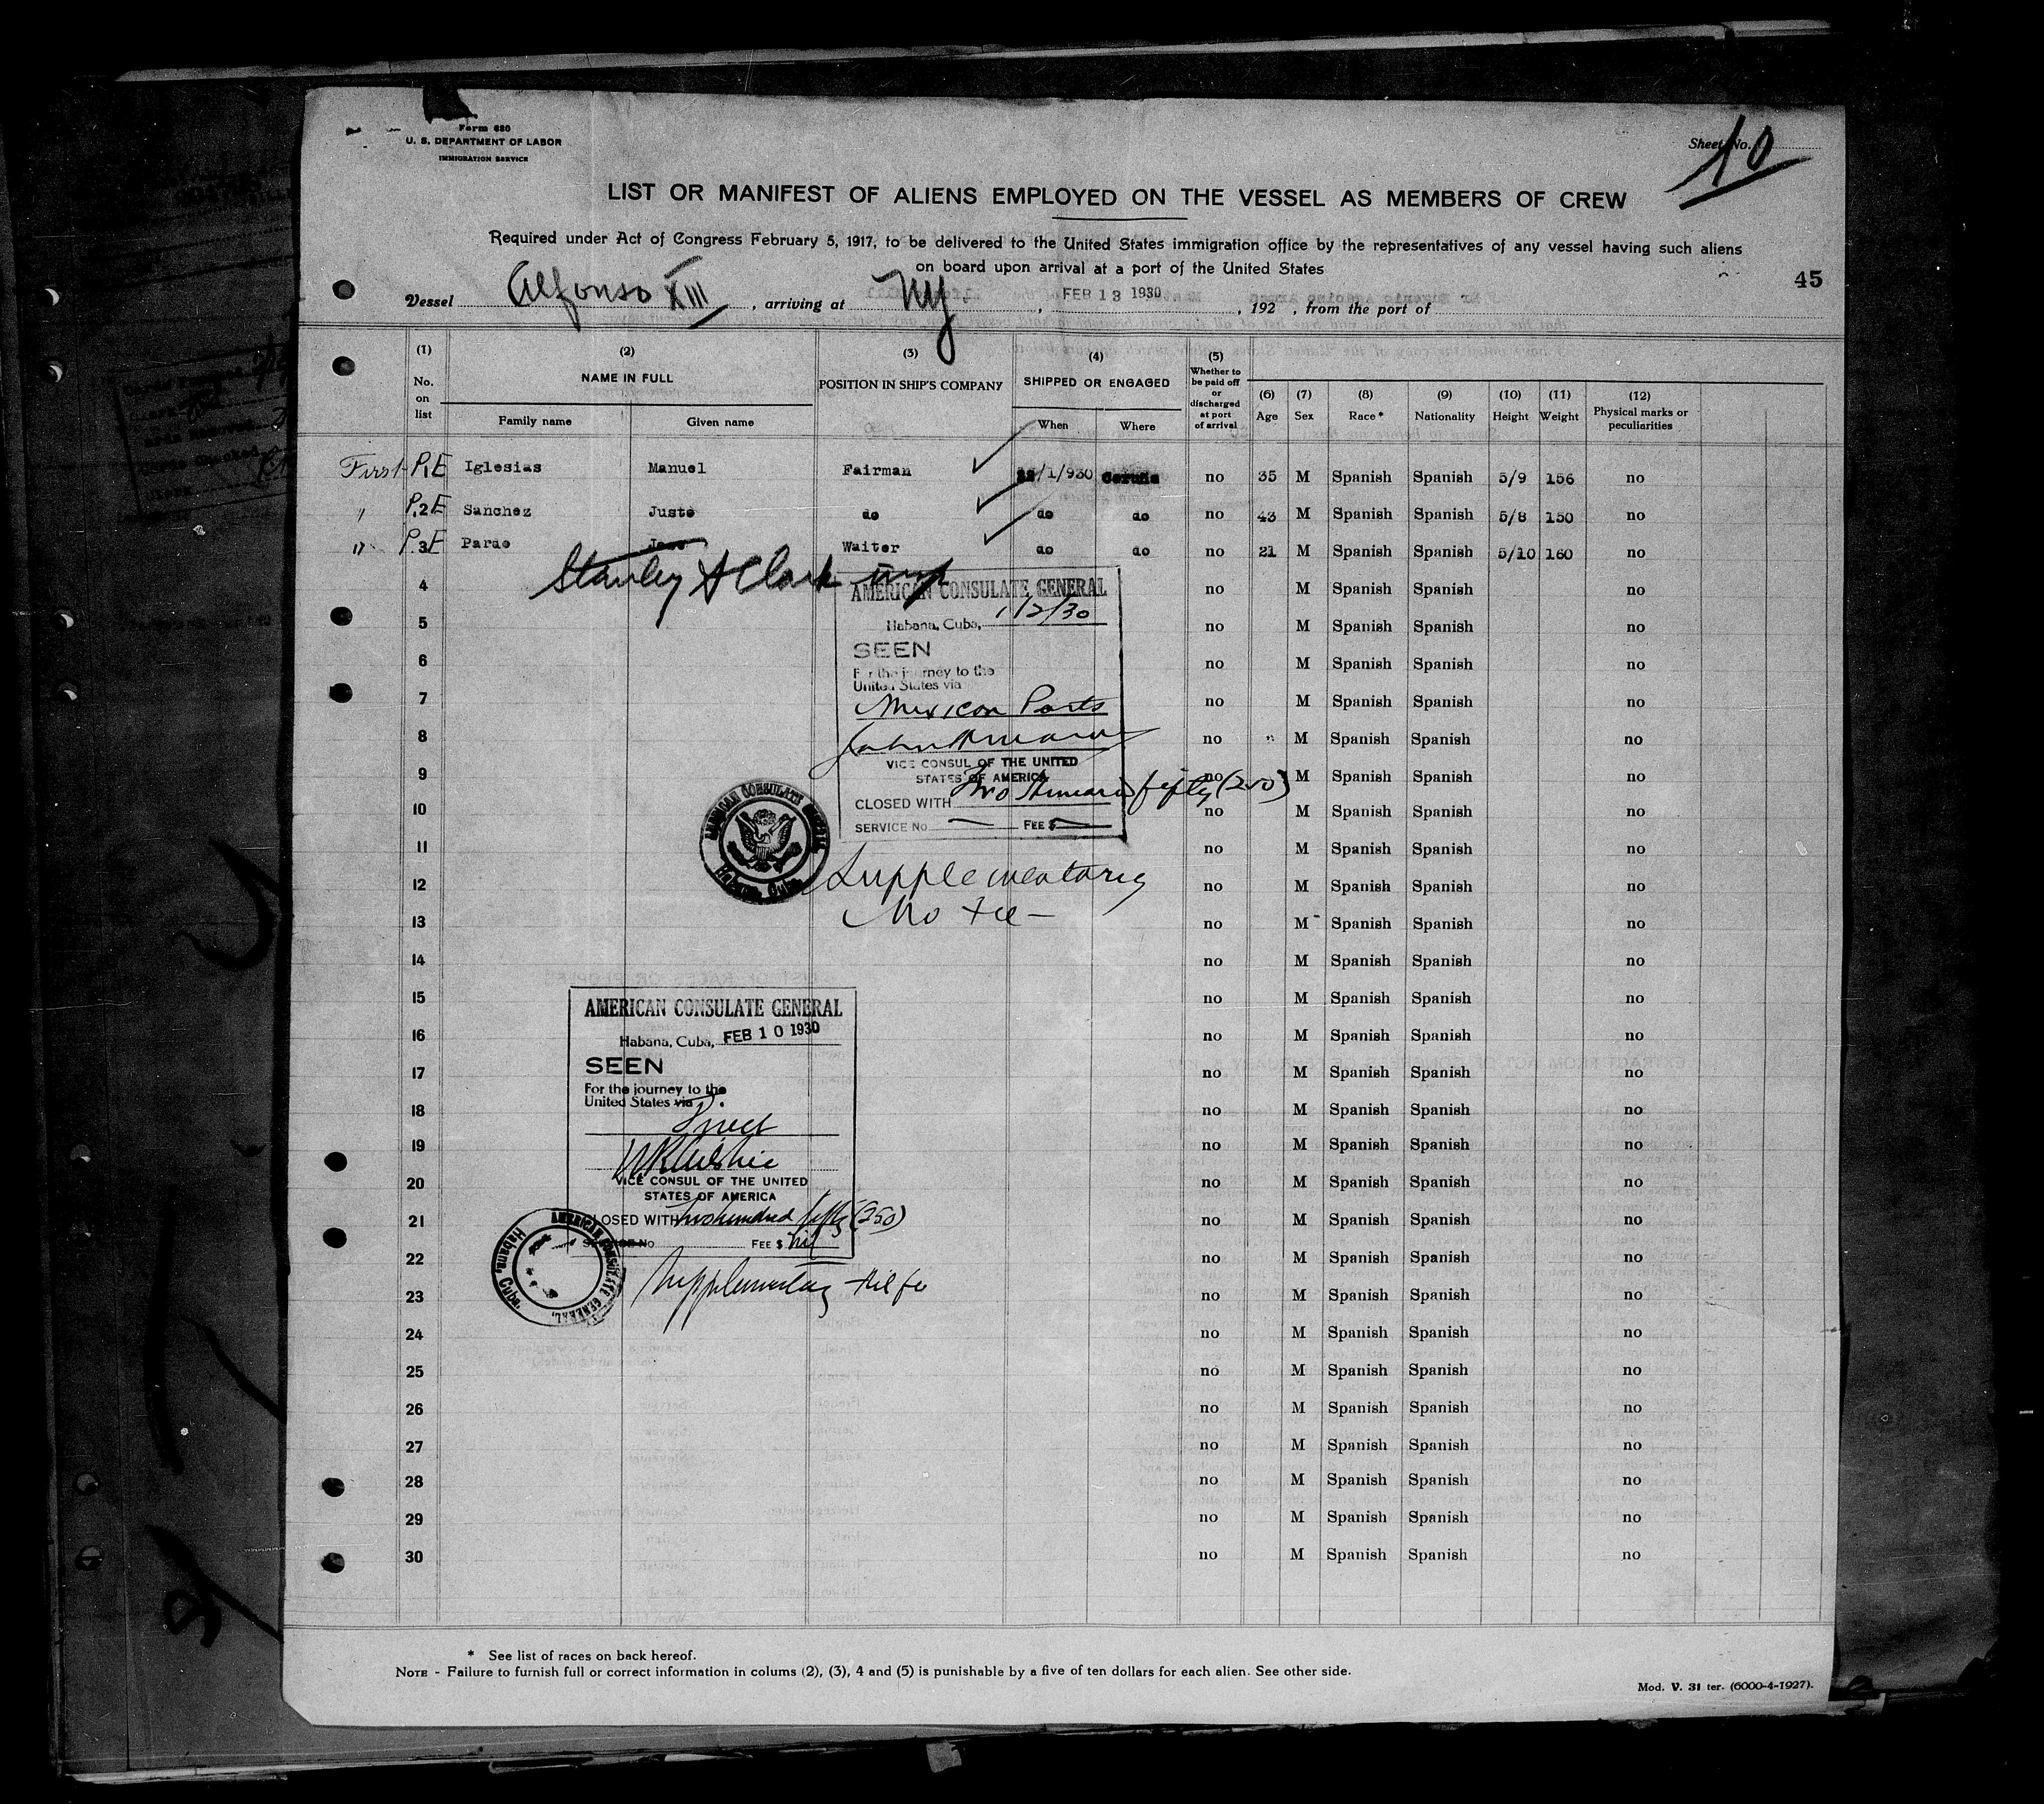 Form 680
U. S. DEPARTMENT OF LABOR
IMMIGRATION SERVICE
Sheet No. 10
LIST OR MANIFEST OF ALIENS EMPLOYED ON THE VESSEL AS MEMBERS OF CREW
Required under Act of Congress February 5, 1917, to be delivered to the United States immigration office by the representatives of any vessel having such aliens
on board upon arrival at a port of the United States
45
Vessel Alfonso XIII, arriving at NY, FEB 13 1930, 192 , from the port of
(1) No. on list
(2) NAME IN FULL
Family name Given name
(3) POSITION IN SHIP'S COMPANY
(4) SHIPPED OR ENGAGED
When Where
(5) Whether to be paid off or discharged at port of arrival
(6) Age (7) Sex (8) Race * (9) Nationality (10) Height (11) Weight (12) Physical marks or peculiarities
First P.1E Iglesias Manuel Fairman /1/930 Coruña no 35 M Spanish Spanish 5/9 156 no
" P.2E Sanchez Justo do do do no 43 M Spanish Spanish 5/8 150 no
" P.3E Pardo Waiter do do no 21 M Spanish Spanish 5/10 160 no
Stanley A Clark
4 no M Spanish Spanish no
5 no M Spanish Spanish no
6 no M Spanish Spanish no
7 no M Spanish Spanish no
8 no M Spanish Spanish no
9 no M Spanish Spanish no
10 no M Spanish Spanish no
11 no M Spanish Spanish no
12 no M Spanish Spanish no
13 no M Spanish Spanish no
14 no M Spanish Spanish no
15 no M Spanish Spanish no
16 no M Spanish Spanish no
17 no M Spanish Spanish no
18 no M Spanish Spanish no
19 no M Spanish Spanish no
20 no M Spanish Spanish no
21 no M Spanish Spanish no
22 no M Spanish Spanish no
23 no M Spanish Spanish no
24 no M Spanish Spanish no
25 no M Spanish Spanish no
26 no M Spanish Spanish no
27 no M Spanish Spanish no
28 no M Spanish Spanish no
29 no M Spanish Spanish no
30 no M Spanish Spanish no
AMERICAN CONSULATE GENERAL
Habana, Cuba, 1/2/30
SEEN
For the journey to the
United States via
Mexican Ports
VICE CONSUL OF THE UNITED
STATES OF AMERICA
CLOSED WITH Two Hundred fifty (250)
SERVICE No FEE $
AMERICAN CONSULATE GENERAL
Habana, Cuba.
Supplementary
No Fee
AMERICAN CONSULATE GENERAL
Habana, Cuba, FEB 10 1930
SEEN
For the journey to the
United States via
Direct
VICE CONSUL OF THE UNITED
STATES OF AMERICA
CLOSED WITH two hundred fifty (250)
SERVICE No FEE $ nil
AMERICAN CONSULATE GENERAL,
Habana, Cuba.
Supplementary Nil fee
* See list of races on back hereof.
NOTE - Failure to furnish full or correct information in colums (2), (3), 4 and (5) is punishable by a five of ten dollars for each alien. See other side.
Mod. V. 31 ter. (6000-4-1927).